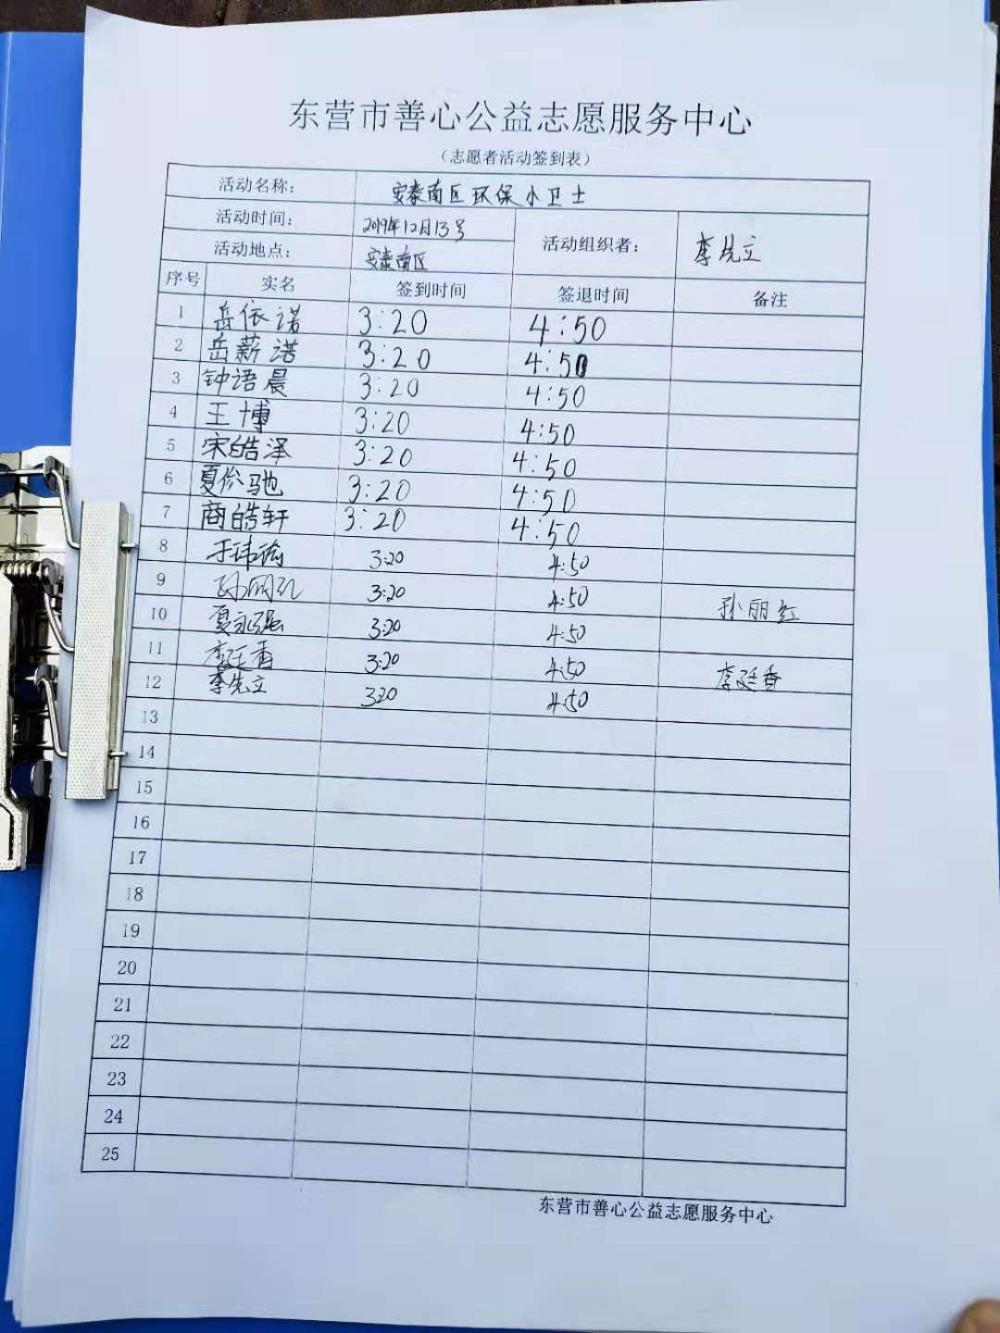 东营市善心公益志愿服务中心
（志愿者活动签到表）
活动名称： 安泰南区环保小卫士
活动时间： 2019年12月13号
活动地点： 安泰南区
活动组织者： 李先立
序号 实名 签到时间 签退时间 备注
1 岳依诺 3:20 4:50
2 岳薪诺 3:20 4:50
3 钟语晨 3:20 4:50
4 王博 3:20 4:50
5 宋皓泽 3:20 4:50
6 夏俭驰 3:20 4:50
7 商皓轩 3:20 4:50
8 于玮瑜 3:20 4:50
9 孙丽红 3:20 4:50 孙丽红
10 夏永强 3:20 4:50
11 李廷香 3:20 4:50 李廷香
12 李先立 3:20 4:50
13
14
15
16
17
18
19
20
21
22
23
24
25
东营市善心公益志愿服务中心